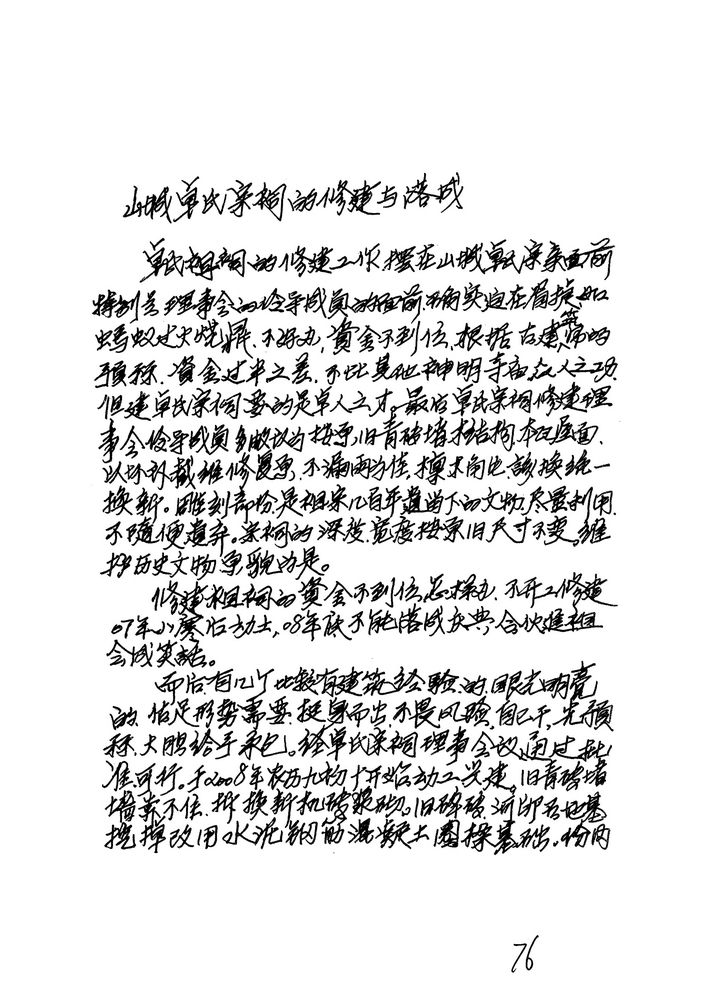 山城单氏宗祠的修建与落成
单氏祖祠的修建工作摆在山城单氏宗亲面前
特别是理事会的领导成员的面前,确实迫在眉
蚂蚁过火烧鼎.不好办,资金不到位,根据古建筑师的
预标.资金过半之差.不比其他神明寺庙众人之功.
但建单氏宗祠要的是单人之才。最后单氏宗祠修建理
事会领导成员多次认为按原旧青砖墙木结构.本瓦屋面.
以坏补截维修复原.不漏雨为佳,檩木角也.该换统一
换新。雕刻部份是祖宗几百年遗留下的文物尽量利用.
不随便遗弃。宗祠的深度.宽度按原旧尺寸不变.维
护历史文物原貌为是。
修建祖祠的资金不到位怎样办.不开工修建
07年小寒后动土,08年就不能落成庆典,会
会成笑話。
而后有几个比较有建筑经验.的眼光明亮
的.估足形势需要.挺身而出.不畏风险,自己干,先预
标.大胆给予承包。经单氏宗祠理事会议.通过批
准可行。于2008年农历九初十开始动工兴建。旧青砖墙
墙基不佳.拆换新机砖浆砌。旧碎砖.河卵石地基
挖掉改用水泥钢筋混凝土圈梁基础。份内
76